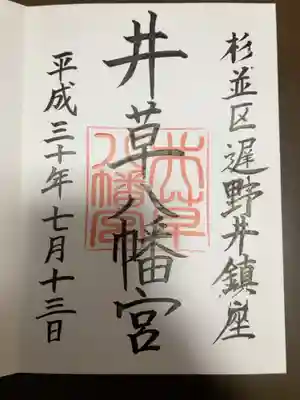 杉並区遅野井鎮座
井草八幡宮
平成三十年七月十三日
井草
八幡宮